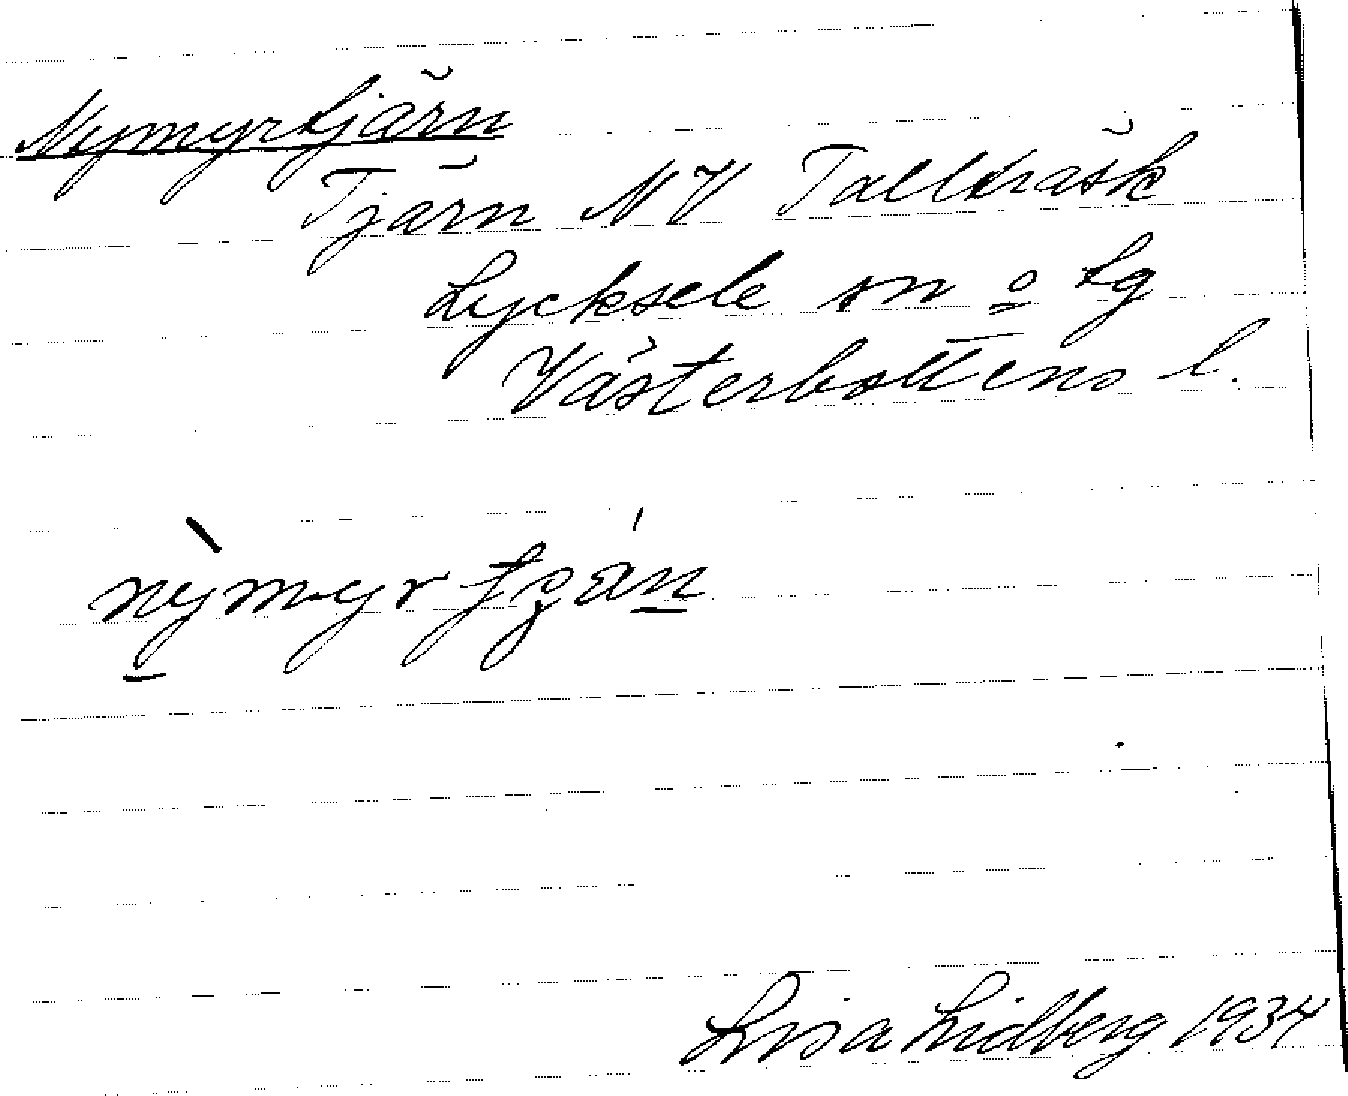 Nymyrtjärn
Tjärn NV Tallträsk
Lycksele sn o Lg
Västerbottens l.
Lisa Lidberg 1934